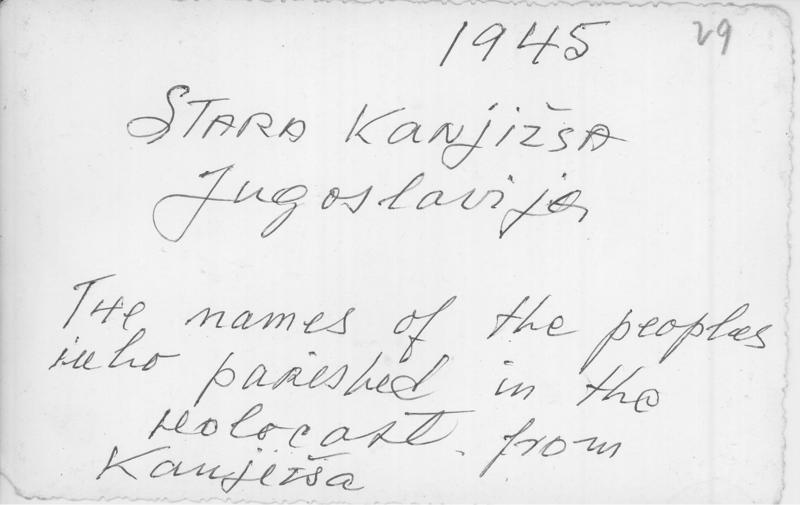 1945 29
STARA Kanjižsa
Jugoslavija
THe names of the peoples
who parished in the
Holocast from
Kanjiža